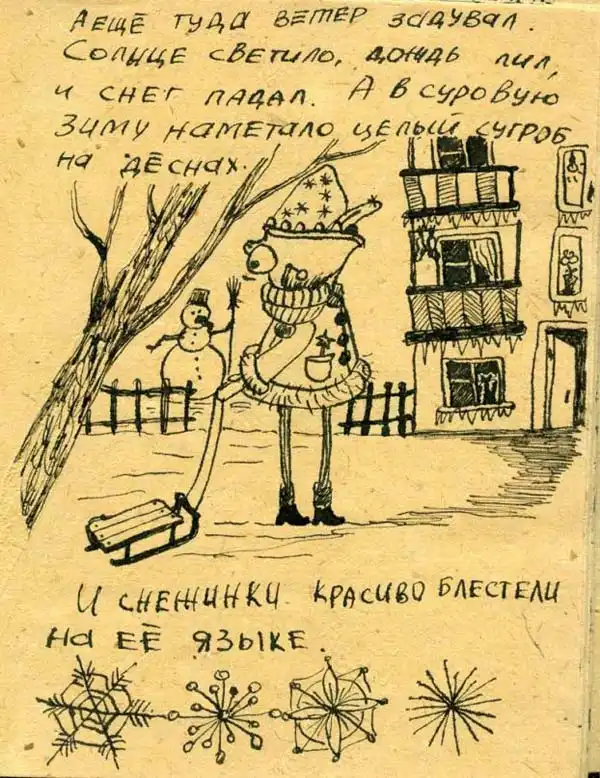 А ЕЩЁ ТУДА ВЕТЕР ЗАДУВАЛ.
СОЛНЦЕ СВЕТИЛО, ДОЖДЬ ЛИЛ,
И СНЕГ ПАДАЛ. А В СУРОВУЮ
ЗИМУ НАМЕТАЛО ЦЕЛЫЙ СУГРОБ
НА ДЁСНАХ.
И СНЕЖИНКИ КРАСИВО БЛЕСТЕЛИ
НА ЕЁ ЯЗЫКЕ.